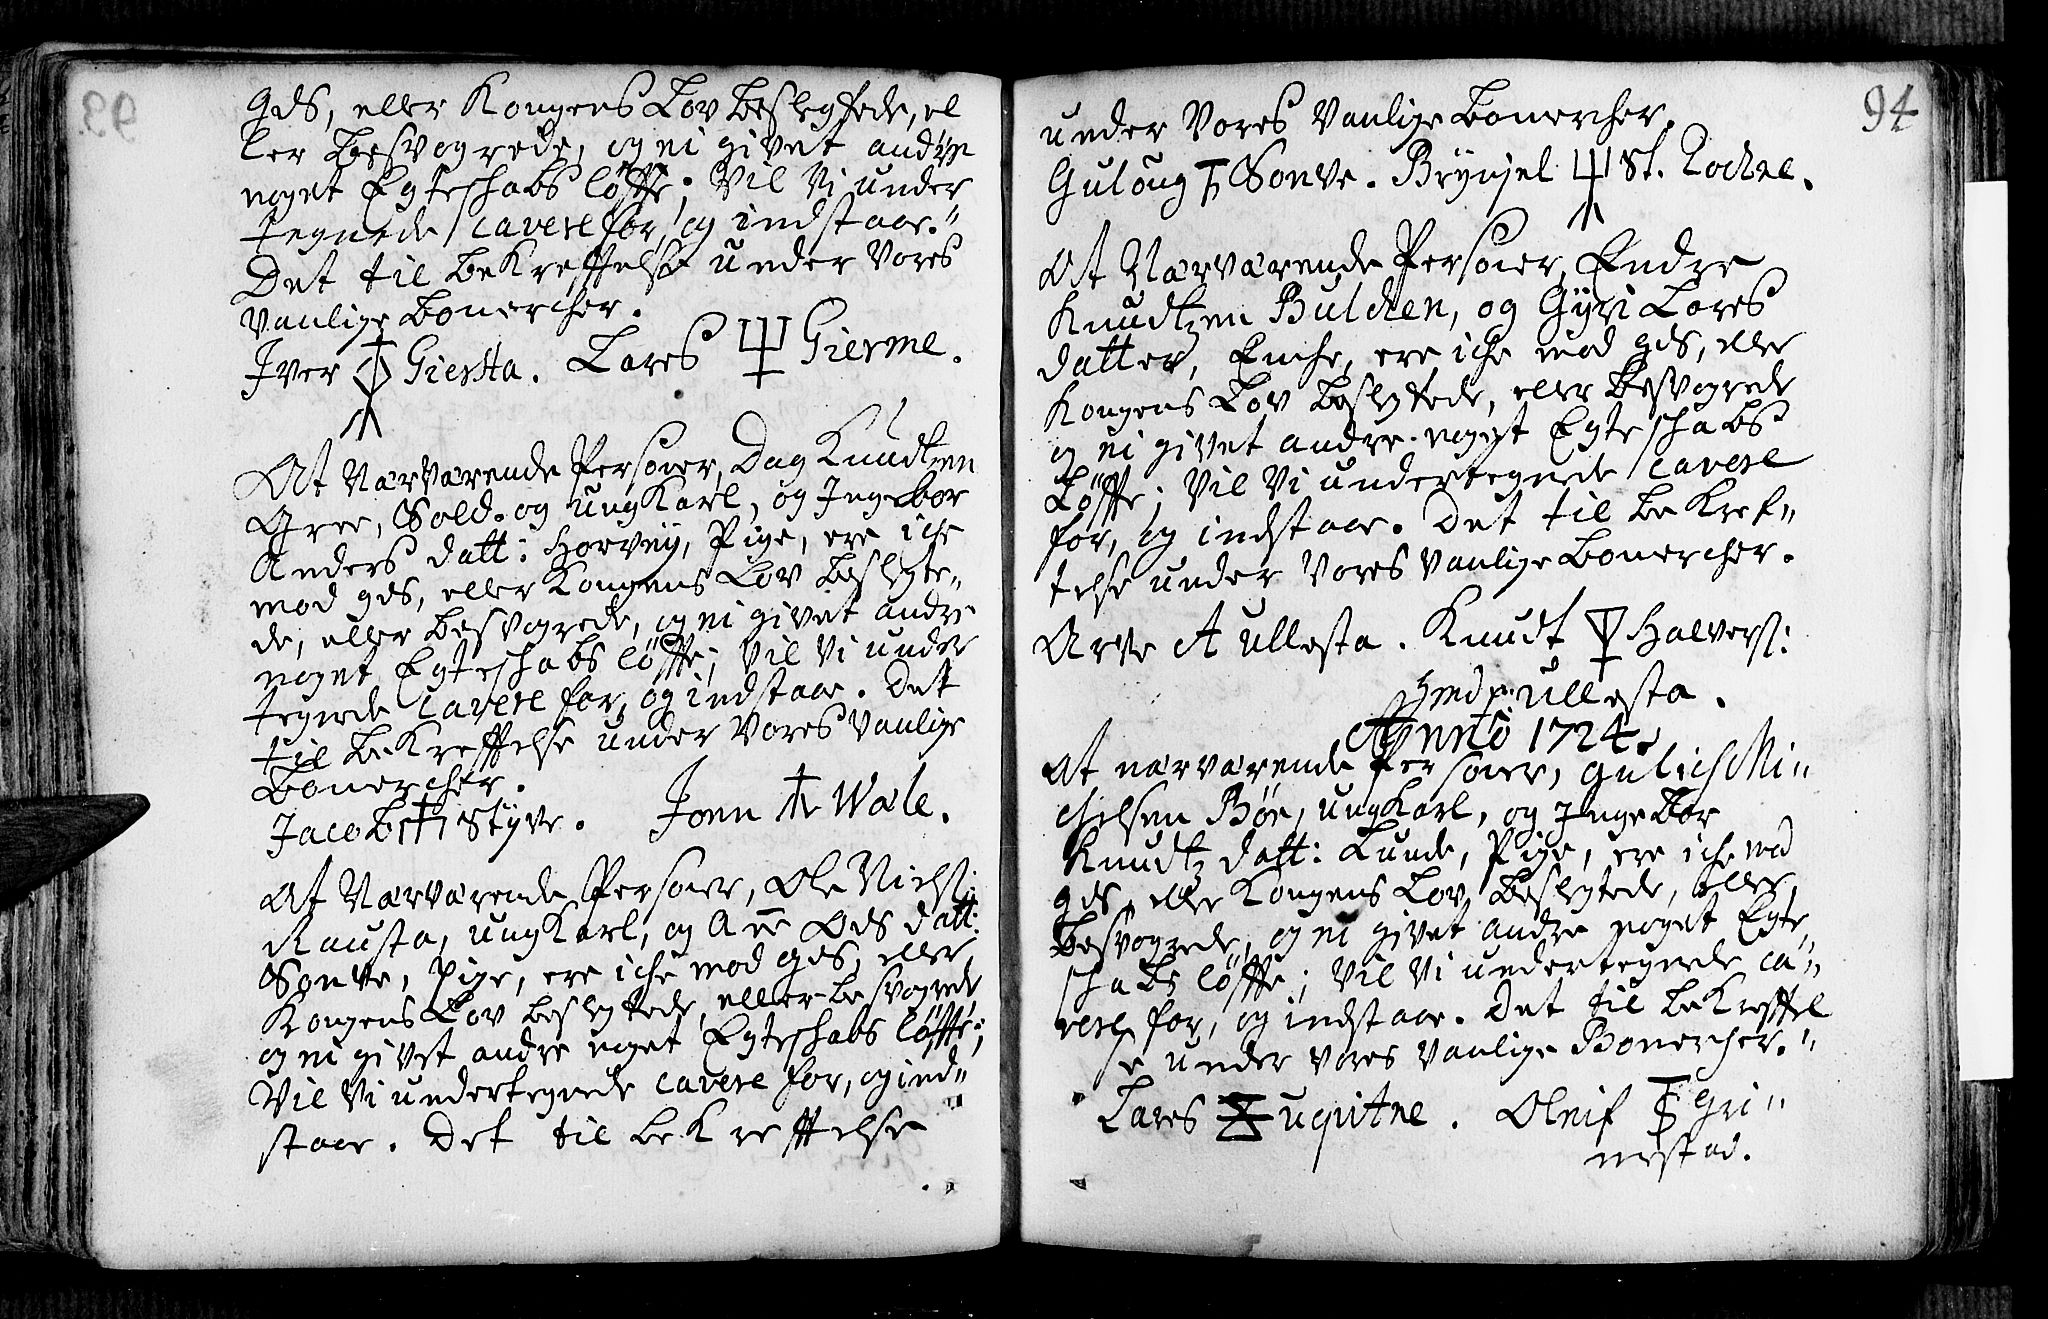 Gds, eller Kongens Lov beslegtede, el
ler besvogrede, og ei givet andre
noget Egteschabs løffte; Vil Vi under
tegnede cavere for, og indstaae."
Det til beKreffttelse under Vores
Vanlige Bomercher.
Iver Giersta. Lares Gierme.
At Nærværende Personer, Dag Knudtzen
Gree, Sold. og UngKarl, og Ingebor
Anders datt: Horvey, Pige, ere iche
mod gds, eller Kongens Lov beslegte-
de, eller besvogrede, og ei givet andre
noget Egteschabs løffte; Vil Vi under
tegnede cavere for, og indstaae. Det
til beKreffttelse under Vores Vanlige
Bomercher.
Jacob Styve. Jonn Wale.
At Nærværende Personer, Ole Nielss:
Rausta, UngKarl, og Añe Ods datt:
Sonve, Pige, ere iche mod Gds, eller
Kongens Lov beslegtede, eller besvogrede
og ei givet andre noget Egteschabs løffte;
Vil Vi undertegnede cavere for, og ind-
staae. Det til beKreffttelse
94
under Vores Vanlige Bomercher.
Guloug Sonve. Brynjel St. Rochne.
At Nærværende Personer, Endre
Knudtzen Bulchen, og Gyri Lares
datter, Enche, ere iche mod gds, eller
Kongens Lov beslegtede, eller besvogrede
og ei givet andre noget Egteschabs
Løffte; Vil Vi undertegnede cavere
for, og indstaae. Det til beKref-
telse under Vores Vanlige Bomercher.
Arve A ullesta. Knudt Halvers:
ullesta.
Anno 1724.
At nærværende Personer, Gulich Mi-
chelsen Bøe, ungKarl, og Ingebor
Knudtz datt: Lunde, Pige, ere iche mod
gds, eller Kongens Lov, beslegtede, eller
besvogrede, og ei givet andre noget Egte
schabs løffte; Vil Vi undertegnede ca-
vere for, og indstaae. Det til beKrefftel
se under Vores Vanlige Bomercher."
Lares ugvitne. Oleif Gri-
mestad.